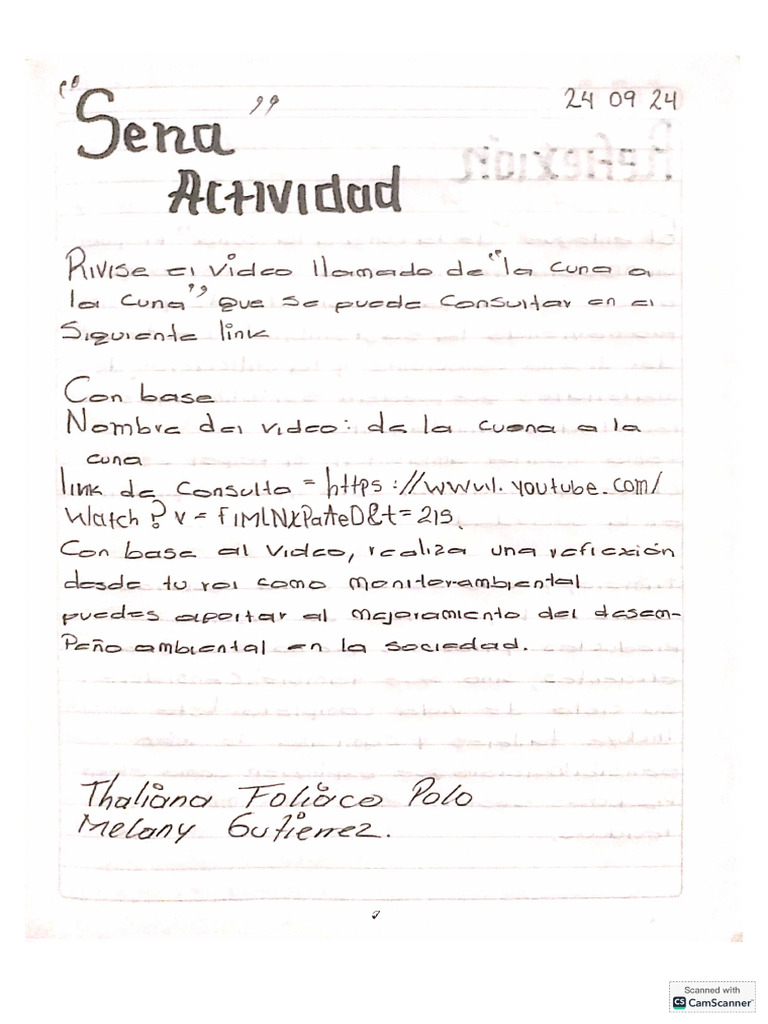 "Sena"
24 09 24
Actividad
Rivise el video llamado de "la cuna a
la cuna" que se puede consultar en el
siguiente link
Con base
Nombre del video: de la cuena a la
cuna
link de consulta = https://www1.youtube.com/
Watch?v=F1MLNXPaAeD&t=21s.
Con base al video, realiza una reflexión
desde tu rol como moniter-ambiental
puedes aportar al mejoramiento del desem-
peño ambiental en la sociedad.
Thaliana Foliaco Polo
Melany Gutierrez.
Scanned with
CS CamScanner